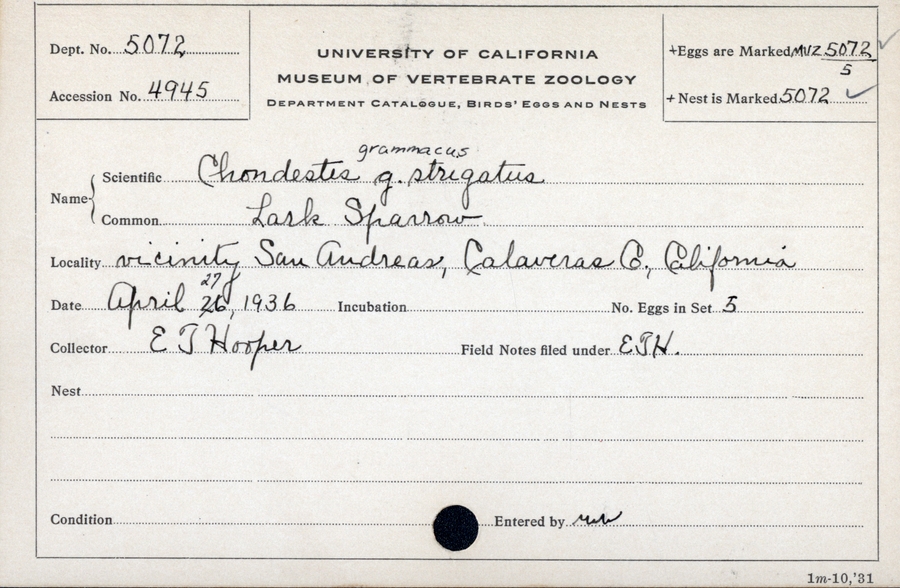 Dept. No. 5072
Accession No. 4945
UNIVERSITY OF CALIFORNIA
MUSEUM OF VERTEBRATE ZOOLOGY
DEPARTMENT CATALOGUE, BIRDS' EGGS AND NESTS
+Eggs are Marked MVZ 5072/5 ✓
+Nest is Marked 5072 ✓
grammacus
Name { Scientific Chondestes g. strigatus
Common Lark Sparrow
Locality vicinity San Andreas, Calaveras Co., California
27
Date April 26, 1936 Incubation No. Eggs in Set 5
Collector E T Hooper Field Notes filed under ETH.
Nest
Condition Entered by
1m-10,'31